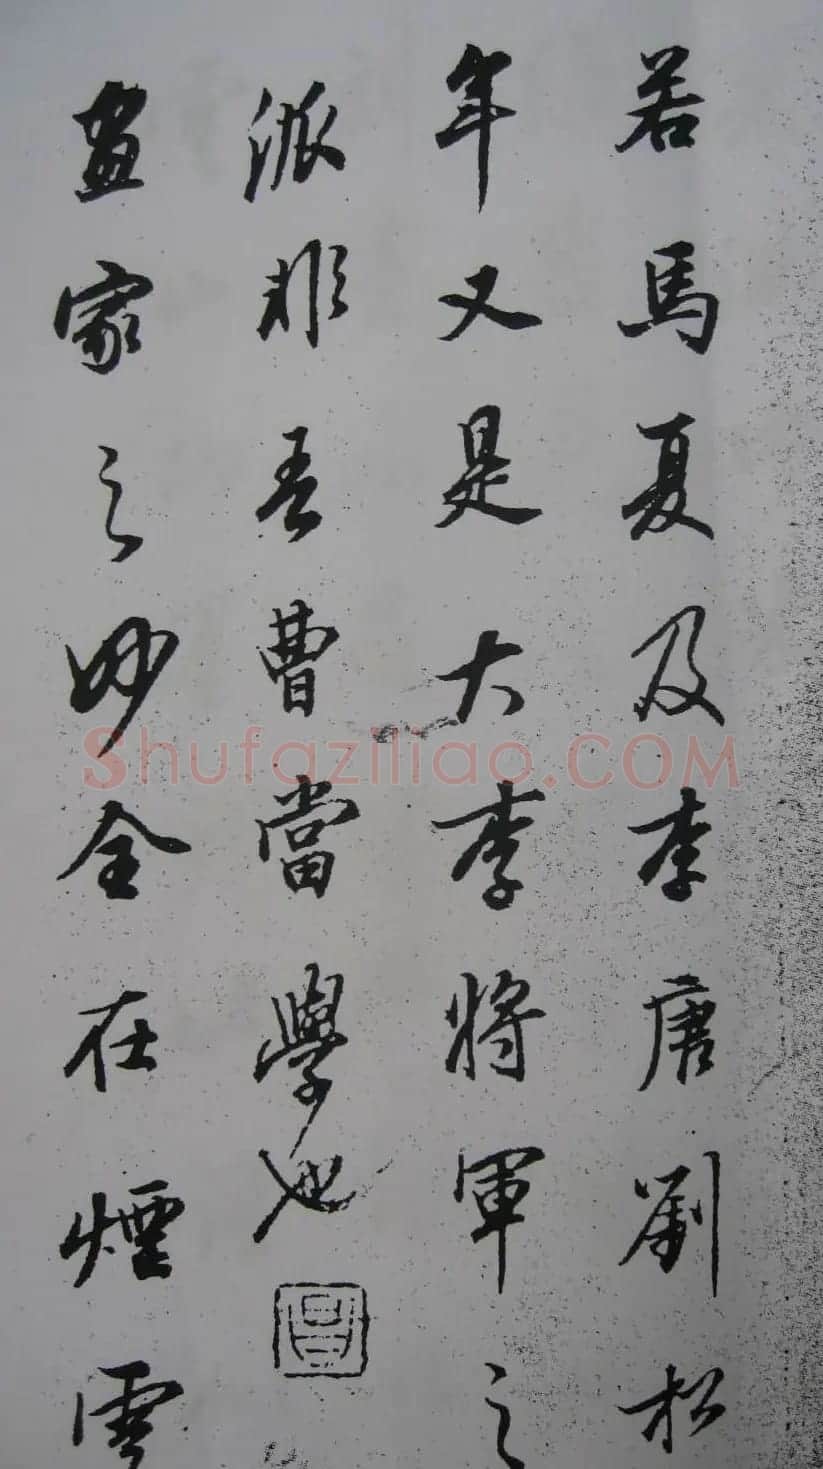 若馬夏及李唐劉松
年又是大李將軍之
派非吾曹當學也
畫家之妙全在煙雲
Shufaziliao.COM